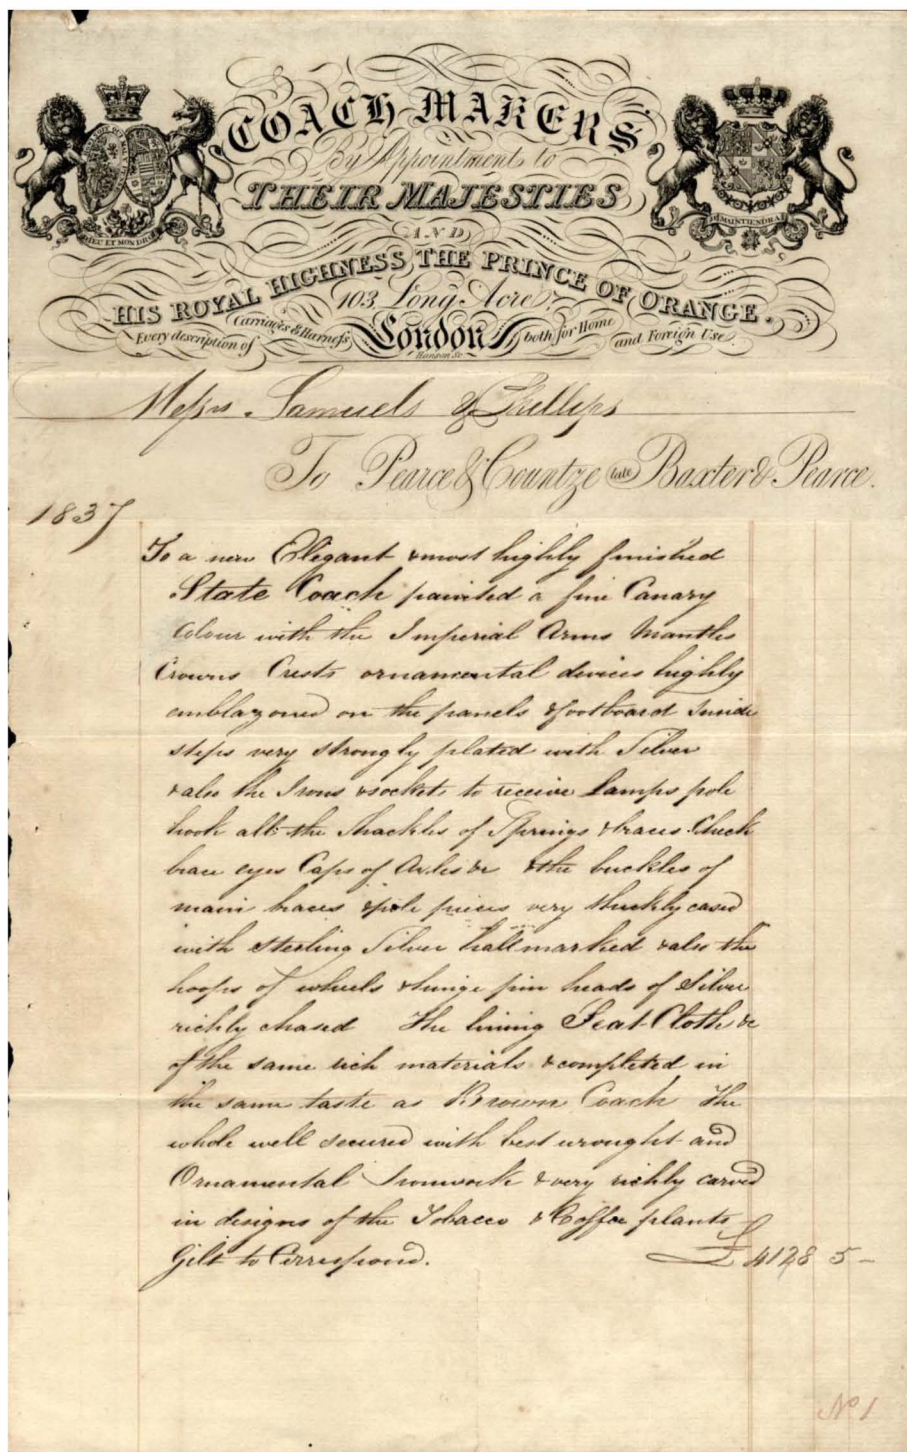 COACH MAKERS
By Appointment to
THEIR MAJESTIES
AND
HIS ROYAL HIGHNESS THE PRINCE OF ORANGE.
103 Long Acre
Every description of Carriages & Harness London both for Home and Foreign Use
DIEU ET MON DROIT
JE MAINTIENDRAI
Messrs. Samuels & Phillips
To Pearce & Countze late Baxter & Pearce.
1837
To a new Elegant & most highly finished
State Coach painted a fine Canary
Colour with the Imperial Arms Mantles
Crowns Crests ornamental devices highly
emblazoned on the panels & footboard Inside
steps very strongly plated with Silver
& also the Irons & sockets to receive Lamps pole
hook all the Shackles of Springs & braces Check
brace eyes Caps of Axles &c & the buckles of
main braces & pole pieces very thickly cased
with Sterling Silver hall marked & also the
hoops of wheels & hinge pin heads of Silver
richly chased The lining Seat Cloth &c
of the same rich materials & completed in
the same taste as Brown Coach The
whole well secured with best wrought and
Ornamental Ironwork & very richly carved
in designs of the Tobacco & Coffee plants
Gilt to Correspond. £ 4128 5 -
No 1